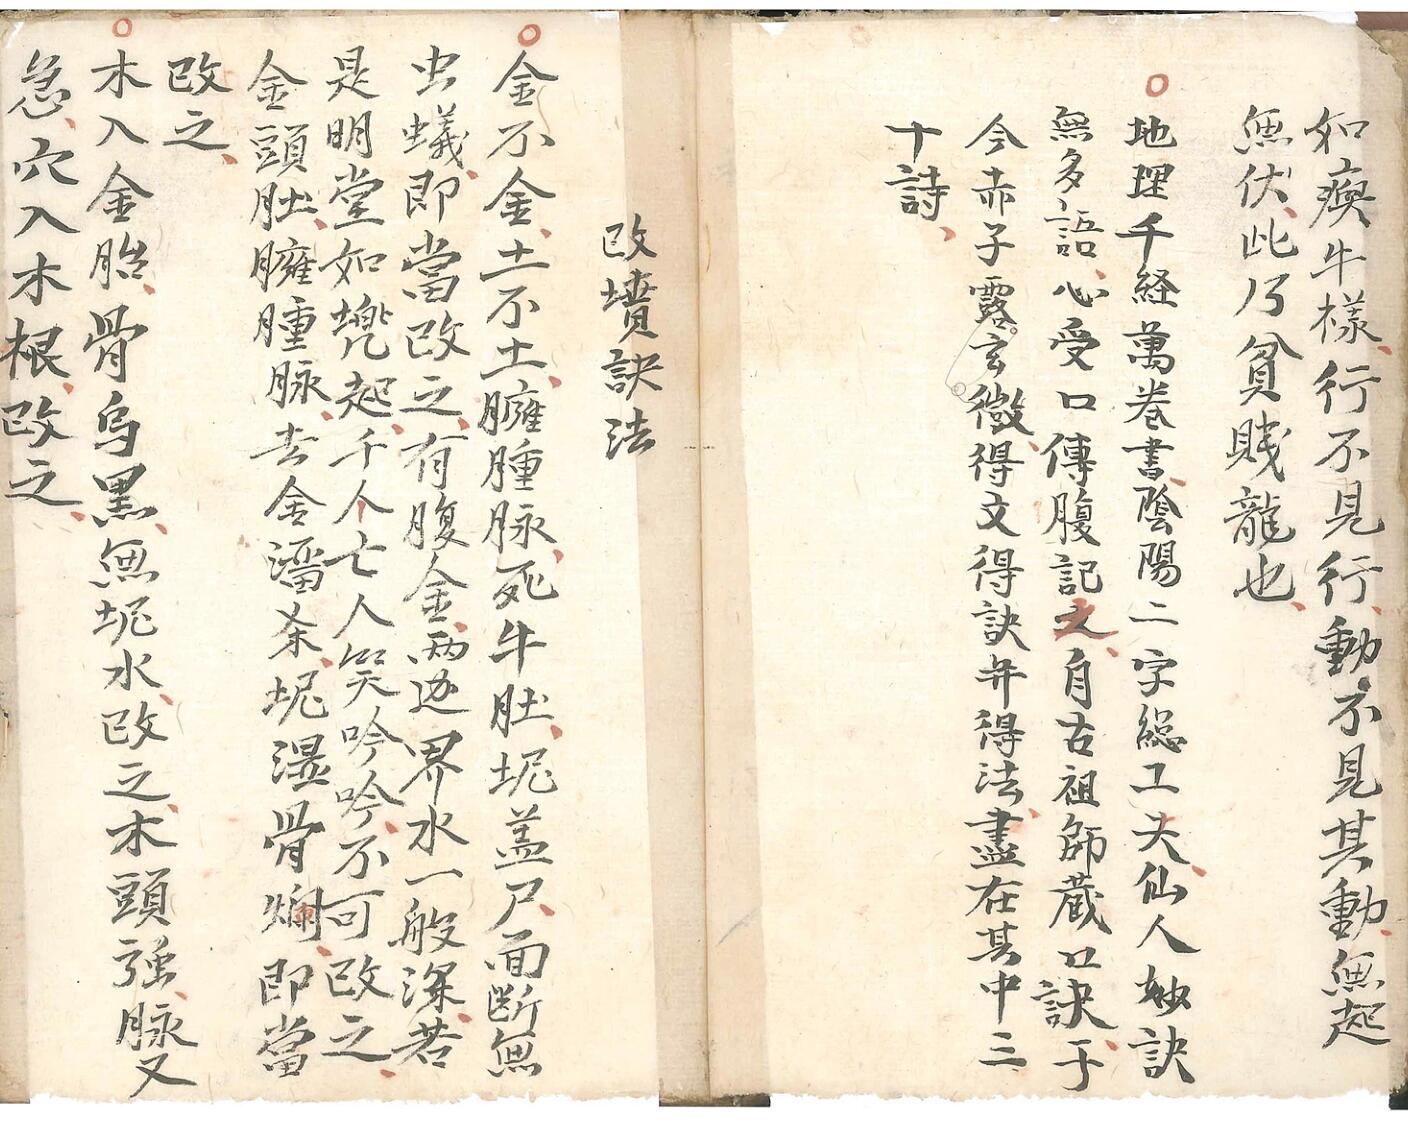 如瘓牛樣、行不見行、動不見其動、無起
無伏、此乃貧賎龍也、
地理千経萬卷書陰陽二字総工夫、仙人妙訣
無多語、心受口傳腹記之、自古祖師蔵口訣、于
今赤子露玄微、得文得訣并得法、盡在其中三
十詩、
改墳訣法
金不金、土不土、臃腫脉、死牛肚、坭盖尸、面斷無
虫蟻、即當改之、有腹金、两边界水一般深、若
是明堂如塊起、千个亡人笑吟吟、不可改之、
金頭肚、臃腫脉、去金潘杀、坭湿骨爛、即當
改之、
木入金脂、骨烏黑、無坭水、改之、木頭强、脉又
急、穴入木根、改之、